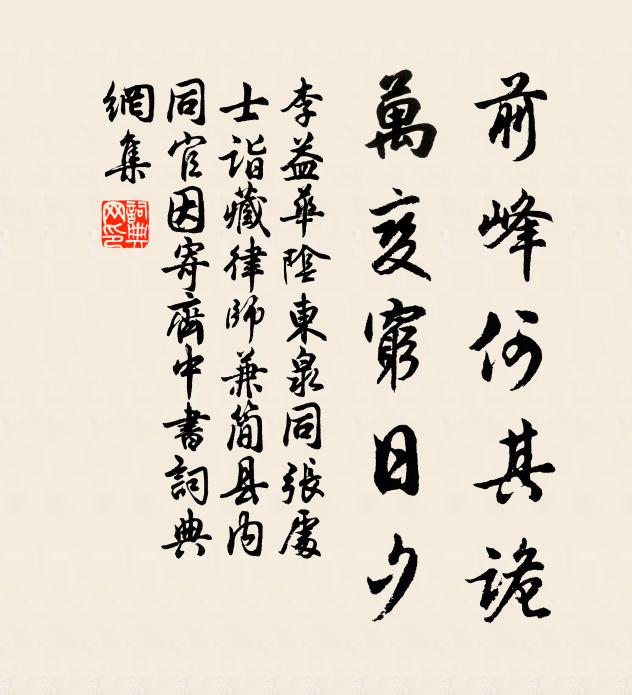 前峰何其詭
萬變窮日夕
李益華陰東泉同張處
士詣藏律師兼简县内
同官因寄齊中書詞典
網集
詞典網印